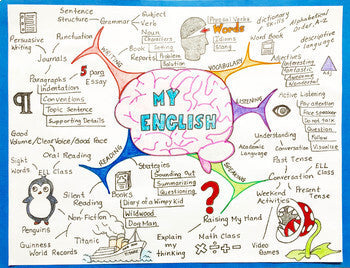 MY
ENGLISH
WRITING
Sentence
Structure
Grammar
Subject
Verb
Noun
Characters
Setting
Problem
Solution
Book
Reports
Persuasive
Writing
Punctuation
Journals
5 parg
Essay
Paragraphs
Indentation
Conventions
Topic Sentence
Supporting Details
VOCABULARY
Words
Phrasal Verbs
Idioms
Slang
Word Book
dictionary
skills
alphabetical
order, A-Z
descriptive
language
Adjectives
Interesting
Fantastic
Awesome
Wonderful
LISTENING
Active Listening
Pay attention
Face speaker
Do not talk
Question
Follow
Visualize
Understanding
Academic
Language
Conversation
SPEAKING
Past Tense
ELL Class
Conversation
Present
Tense
Weekend
Activities
Video
Games
Raising My Hand
Math Class
× ÷ + -
Explain
my
thinking
?
READING
Good
Volume/Clear Voice/Good Pace
Oral Reading
Sight
Words
ELL
Class
Silent
Reading
Non-Fiction
Penguins
Guinness
World Records
Titanic
Books
Diary of a Wimpy Kid
Wildwood
Dog Man
Strategies
Sounding Out
Summarizing
Questioning